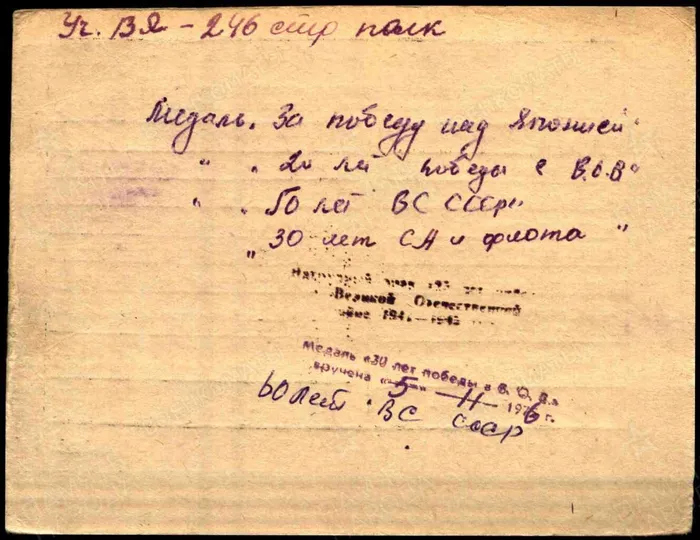 Уч. ВЯ - 246 стр полк
Медаль „За победу над Японией"
" „20 лет победы в В.О.В"
" „50 лет ВС СССР"
„30 лет СА и флота"
Нагрудный знак «25 лет
Великой Отечественной
войне 1941—1945
Медаль «30 лет победы в В. О. В.»
вручена «5» 11 1976 г.
60 лет ВС СССР